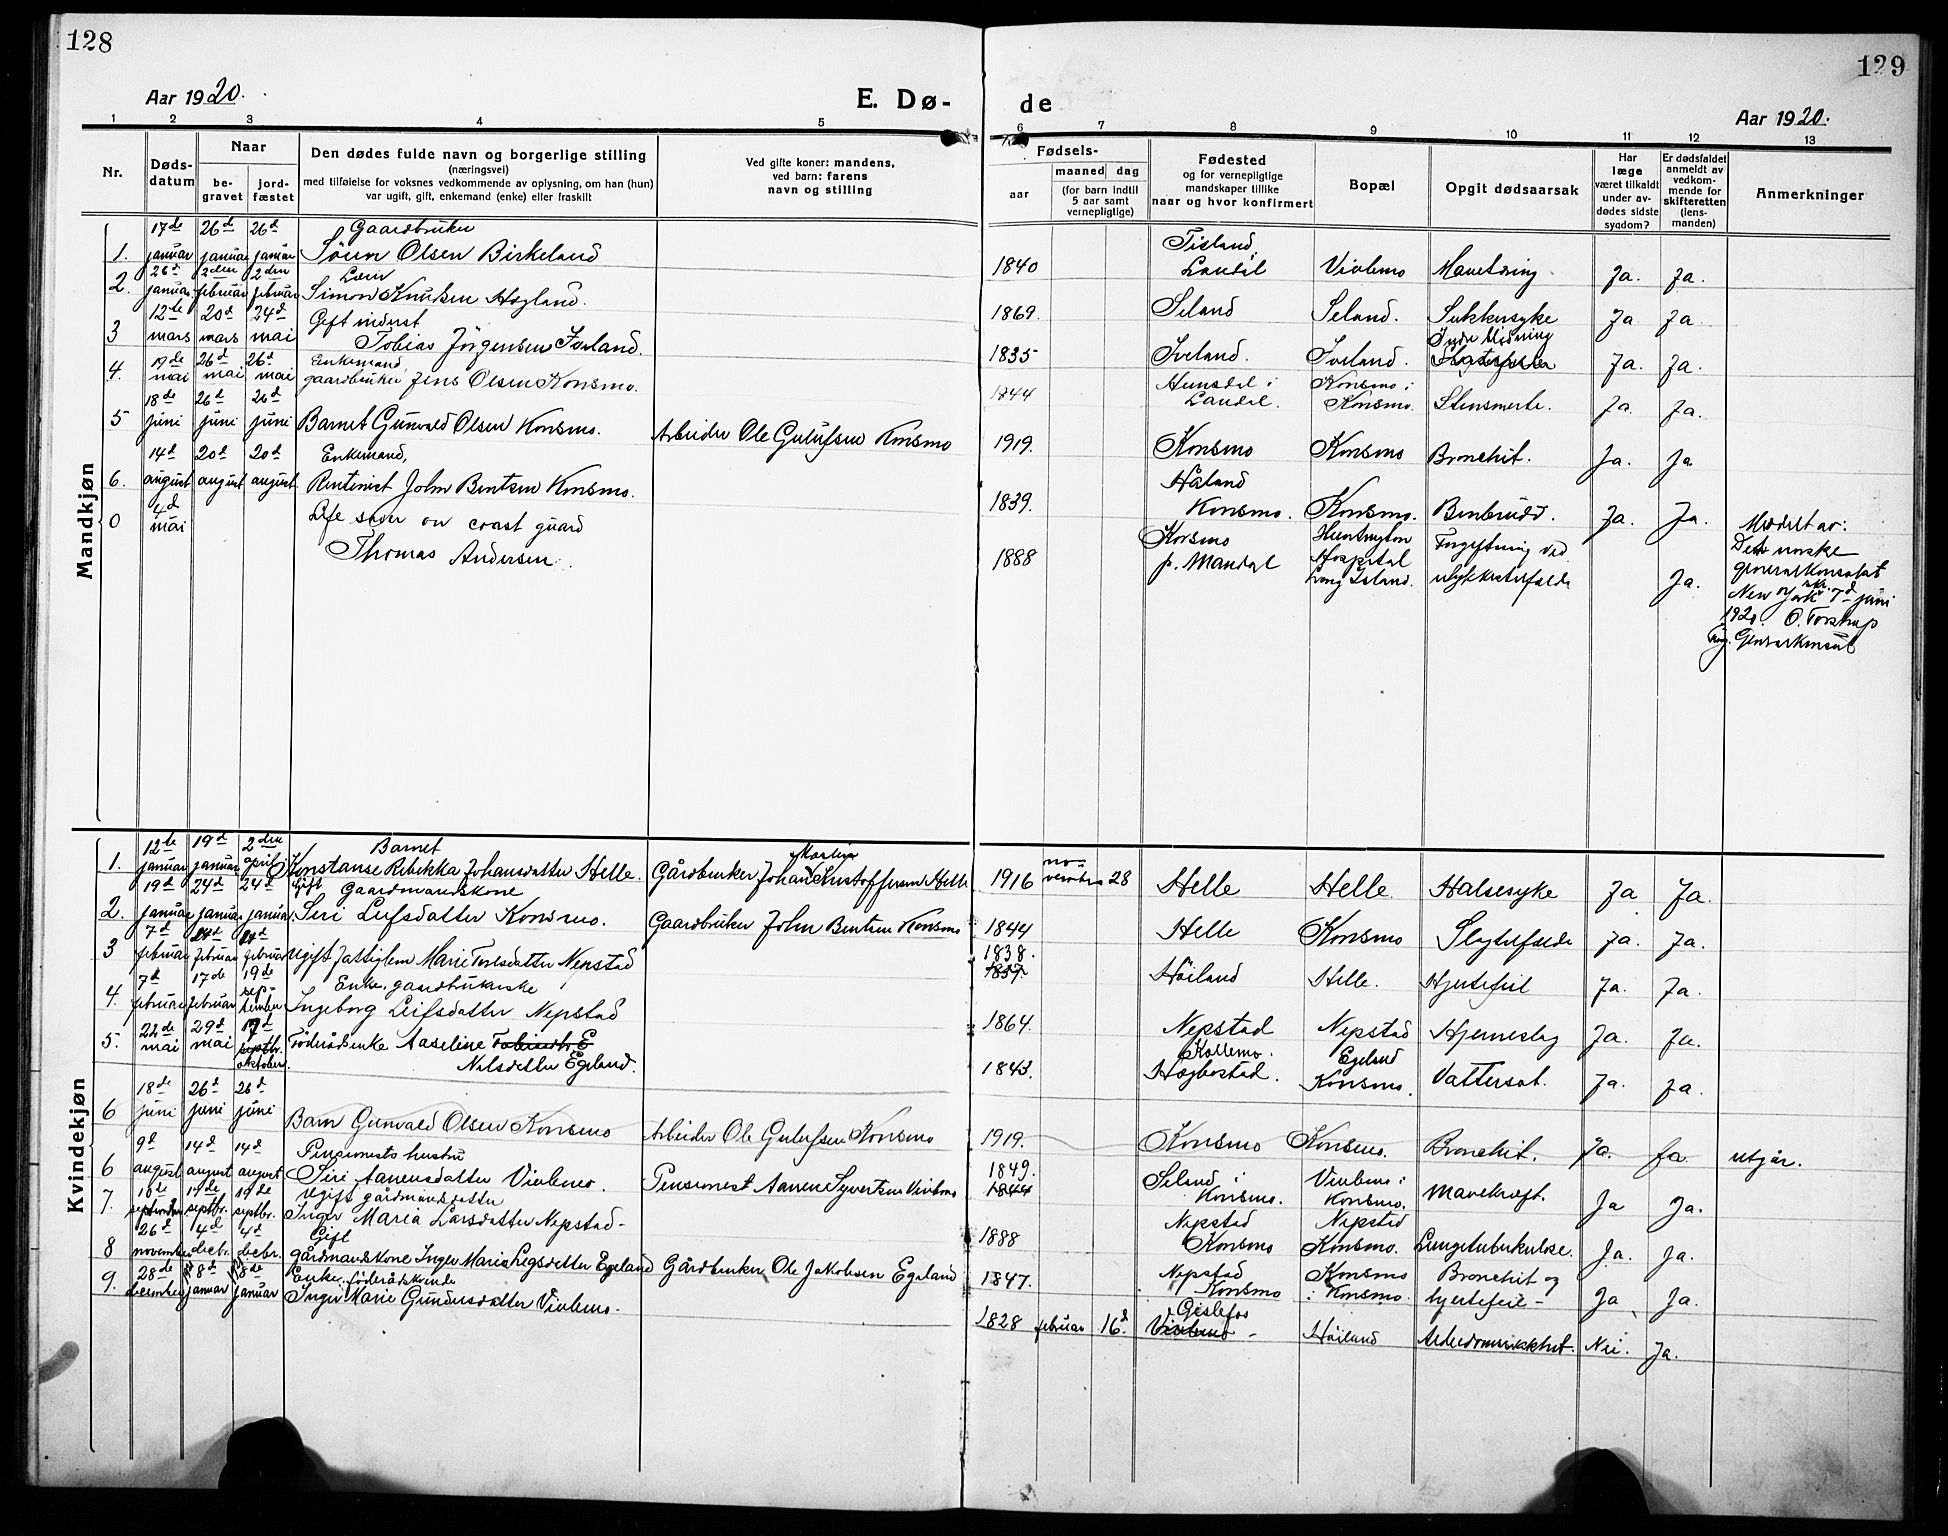 128
129
Aar 1920.
E. Dø-
de
Aar 1920.
1 2 3 4 5 6 7 8 9 10 11 12 13
Nr.
Døds-
datum
Naar
be-
gravet
jord-
fæstet
Den dødes fulde navn og borgerlige stilling
(næringsvei)
med tilføielse for voksnes vedkommende av oplysning, om han (hun)
var ugift, gift, enkemand (enke) eller fraskilt
Ved gifte koner: mandens,
ved barn: farens
navn og stilling
Fødsels-
aar
maaned dag
(for barn indtil
5 aar samt
vernepligtige)
Fødested
og for vernepligtige
mandskaper tillike
naar og hvor konfirmert
Bopæl
Opgit dødsaarsak
Har
læge
været tilkaldt
under av-
dødes sidste
sygdom?
Er dødsfaldet
anmeldt av
vedkom-
mende for
skifteretten
(lens-
manden)
Anmerkninger
Mandkjøn
1. 17de januar 26d januar 26d januar Gaardbruker
Sören Olsen Birkeland 1840 Laudal Vivlemo Ja. Ja.
2. 26d januar 2den februar 2den februar
Simon Knutsen Høgland. 1869. Seland Seland. Sukkersyke Ja Ja.
3 12te mars 20d mars 24d mai Gift inderst
Tobias Jörgensen Iveland. 1835 Iveland. Iveland. Indre blödning Ja. Ja.
4. 19de mai 26d mai 26d mai Enkemand,
gaardbruker Jens Olsen Konsmo. 1844 i Laudal. Konsmo i Konsmo. Ja. Ja.
5 18de juni 26d juni 26d juni
Barnet Gunvald Olsen Konsmo. Arbeider Ole Gulufsen Konsmo 1919. Konsmo Konsmo Bronchit. Ja. Ja
6. 14d august 20d august 20d august Enkemand,
Rentenist John Bentsen Konsmo. 1839. Håland Konsmo. Konsmo. Benbrudd. Ja. Ja.
0 4d mai Life saver on coast guard
Thomas Andersen. 1888 Konsmo p. Mandal Huntington Hospital Long Island. Forgiftning ved ulykkestilfælde Ja.
Meddelt av:
Det norske
generalkonsulat
New York 7d juni
1920. O. Torstrup
fung. Generalkonsul
Kvindekjøn
1. 12te januar 19d januar 2den april Barnet
Konstanse Rebekka Johansdatter Helle. Gårdbruker Johan Martin Kristoffersen Helle 1916 november 28 Helle Helle. Halsesyke Ja Ja.
2. 19d januar 24d januar 24d januar Gift Gaardmandskone
Siri Leifsdatter Konsmo. Gaardbruker John Bentsen Konsmo 1844 Helle Konsmo Slagtilfælde Ja. Ja.
3 7d februar februar februar
Ugift Marie Nepstad 1838. 1837. Höiland Helle. Hjertefeil Ja. Ja.
4. 7d februar 17de februar 19de september Enke, gaardbrukerske
Ingeborg Leifsdatter Nepstad 1864. Nepstad Nepstad Hjerneslag Ja. Ja.
5. 22de mai 29d mai septbr. oktober.
Föderådsenke Aaseline
Nilsdatter Egeland. 1843. Kollemo. Hægbostad. Egeland Konsmo. Vattersot. Ja. Ja.
6 18de juni 26d juni 26d juni
Barn Gunvald Olsen Konsmo Arbeider Ole Gulufsen Konsmo 1919. Konsmo Konsmo. Bronchit. Ja. Ja. utgår.
6 9d august 14d august 14d august Pensionists hustru
Siri Aanensdatter Vivlemo. Pensionist Aanen Syvertsen Vivlemo 1849. 1844 Seland i Konsmo. Vivlemo i Konsmo. Mavekræft. Ja Ja.
7. septbr. septbr. Ugift gårdmandsdatter
Inger Maria Larsdatter Nepstad- 1888 Nepstad Konsmo Nepstad Konsmo. Lungetuberkulose. Ja. Ja.
8 26d november 4d decbr. 4d decbr. Gift
gårdmandskone Inger Marie Egeland Gårdbruker Ole Jakobsen Egeland 1847. Nepstad Konsmo Konsmo i Konsmo. Bronchit og hjertefeil - Ja Ja.
9. 28de december 8d januar 8de januar Enke, föderådskvinde
Inger Marie Gundersdatter Vivlemo. 1828 februar 16d. Gislefos Vivlemo - Höiland Alderdomssvakhet. Nei. Ja.